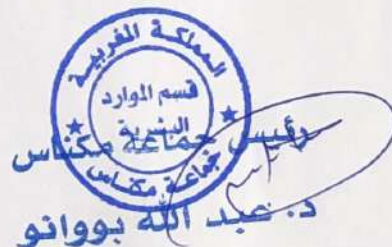 المملكة المغربية
قسم الموارد
البشرية
جماعة مكناس
رئيس جماعة مكناس
د. عبد الله بووانو